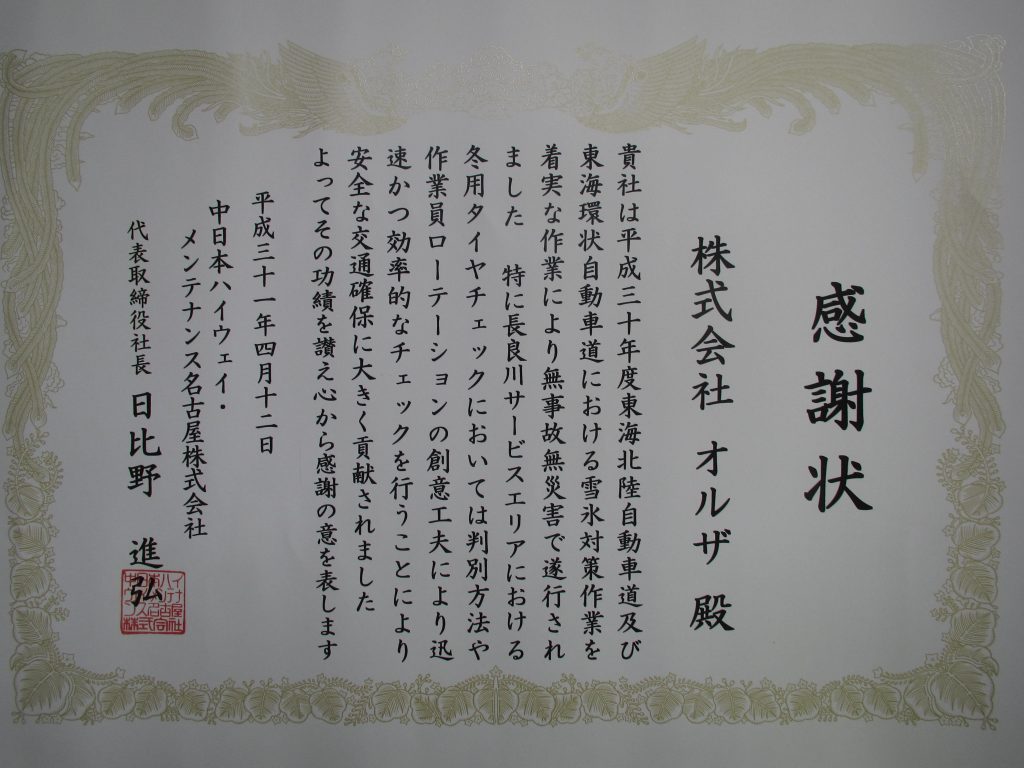 感謝状
株式会社 オルザ 殿
貴社は平成三十年度東海北陸自動車道及び
東海環状自動車道における雪氷対策作業を
着実な作業により無事故無災害で遂行され
ました 特に長良川サービスエリアにおける
冬用タイヤチェックにおいては判別方法や
作業員ローテーションの創意工夫により迅
速かつ効率的なチェックを行うことにより
安全な交通確保に大きく貢献されました
よってその功績を讃え心から感謝の意を表します
平成三十一年四月十二日
中日本ハイウェイ・
メンテナンス名古屋株式会社
代表取締役社長 日比野 進弘